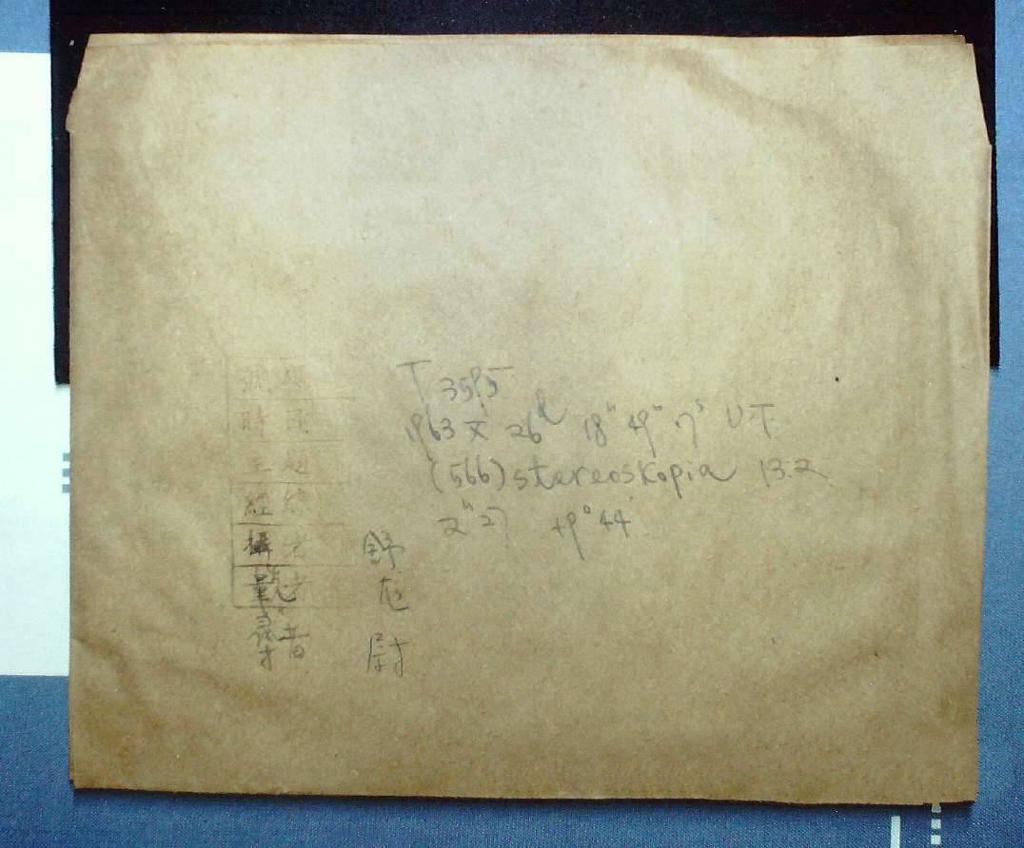 T 3595
1963 X 26ᵈ 18ʰ 49ᵐ 7ˢ U.T.
(566) stereoskopia 13.2
2ʰ27 +9°44
時
主 題
經 緯
攝 者 舒
量 者
尋 者 尉